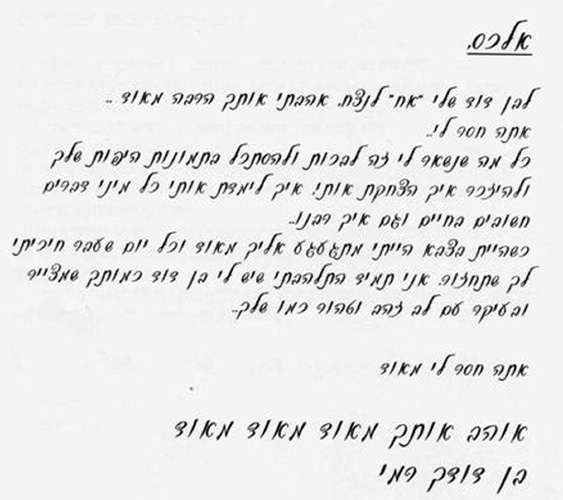 אלכס,
לבן דוד שלי "אח" לנצח. אהבתי אותך הרבה מאוד ..
אתה חסר לי..
כל מה שנשאר לי זה לבכות ולהסתכל בתמונות היפות שלך
ולהיזכר איך הצחקת אותי איך לימדת אותי כל מיני דברים
חשובים בחיים וגם איך רבנו..
כשהיית בצבא הייתי מתגעגע אליך מאוד וכל יום שעבר חיכיתי
לך שתחזור. אני תמיד התלהבתי שיש לי בן דוד כמותך שמצייר
ובעיקר עם לב זהב וטהור כמו שלך..
אתה חסר לי מאוד
אוהב אותך מאוד מאוד מאוד
בן דודך רמי